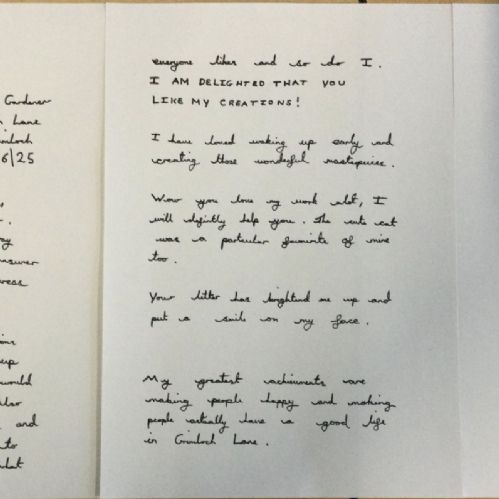 Gardener
Lane
6/25
answer
would
and
to
everyone likes and so do I.
I AM DELIGHTED THAT YOU
LIKE MY CREATIONS!
I have loved waking up early and
creating those wonderful masterpiece.
Wow you love my work alot, I
will defintly help you. The cute cat
was a particular favourite of mine
too.
Your letter has brightend me up and
put a smile on my face.
My greatest achiuments are
making people happy and making
people actually have a good life
in Grimloch Lane.